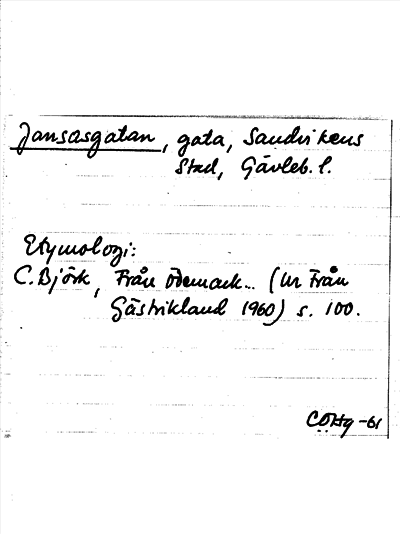 Jansasgatan, gata, Sandvikens
Stad, Gävleb. l.
Etymologi:
C. Björk, Från ödemark... (Ur Från
Gästrikland 1960) s. 100.
-61